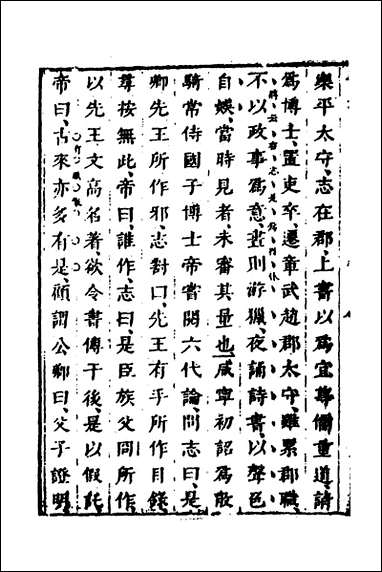 樂平太守、志在郡、上書以爲宜尊儒重道、請
爲博士、置吏卒、遷章武趙郡太守、雖累郡職、
不以政事爲意、晝則游獵、夜誦詩書、以聲色
自娛、當時見者、未審其量也、咸寧初詔爲散
騎常侍國子博士帝嘗閱六代論、問志曰、是
卿先王所作邪、志對曰、先王有手所作目錄、
尋按無此、帝曰、誰作、志曰、是臣族父冏所作、
以先王文高名著欲令書傳于後、是以假託、
帝曰、古來亦多有是、顧謂公卿曰、父子證明、